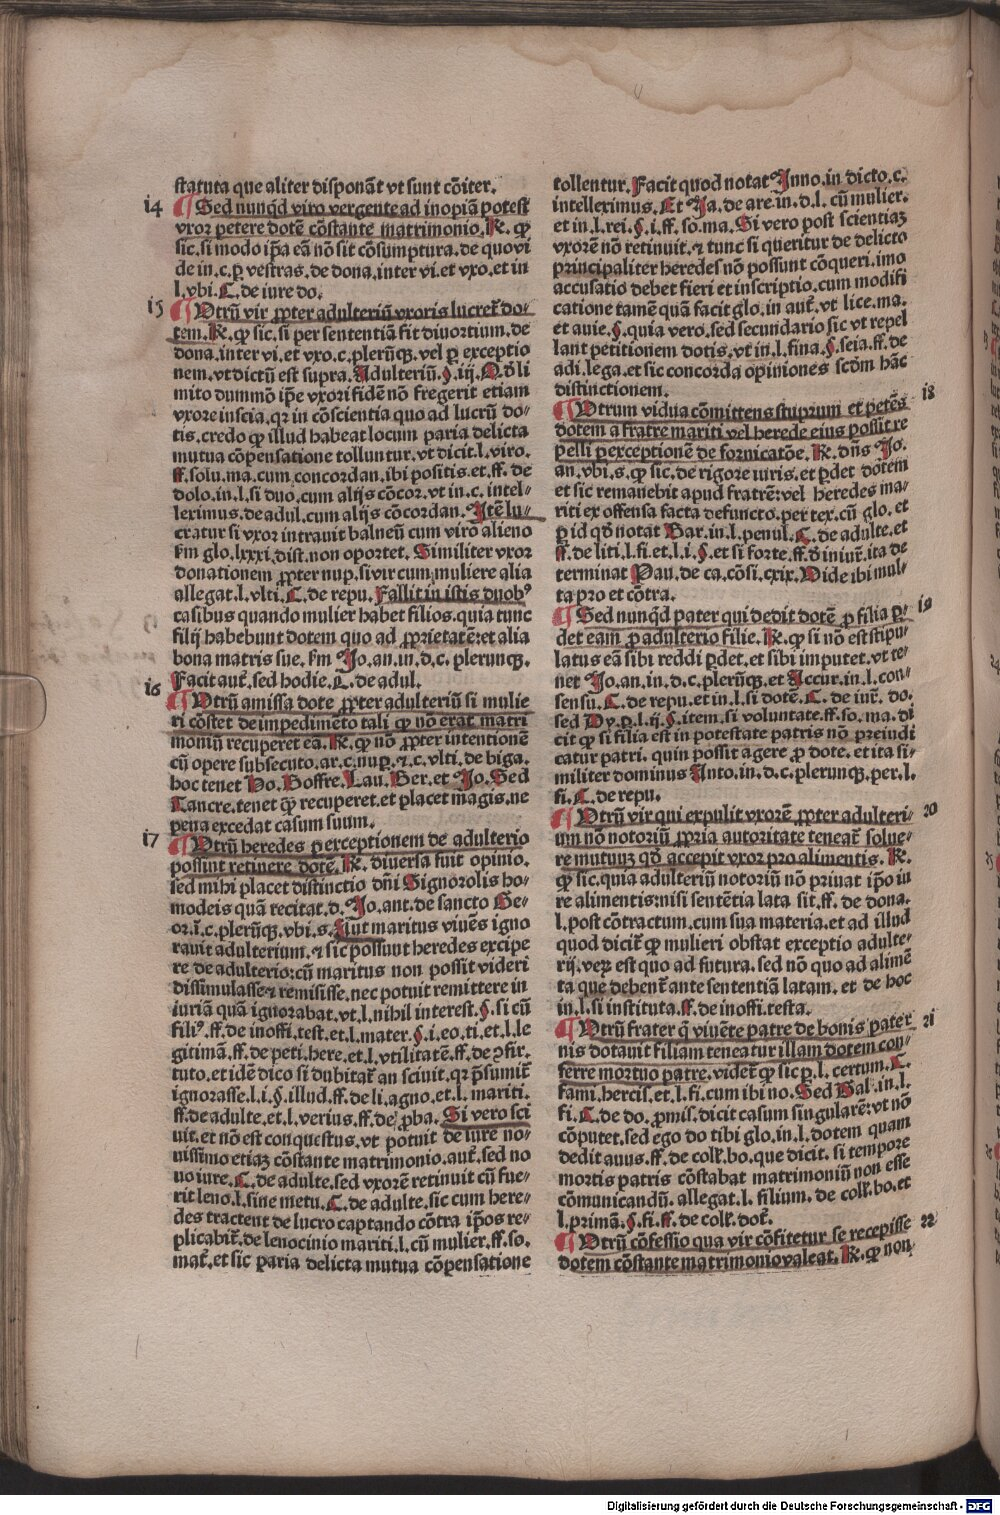 statuta que aliter disponāt vt sunt cōiter.
14 ¶ Sed nunqͥd viro vergente ad inopiā potest
vxor petere dotē cōstante matrimonio. R. ꝙ
sic. si modo ip̄a eā nō sit cōsumptura. de quo vi
de in. c. ꝑ vestras. de dona. inter vi. et vxo. et in
l. vbi. C. de iure do.
15 ¶ Utrū vir ꝓpter adulteriū vxoris lucret̄ do⸗
tem. R. ꝙ sic. si per sententiā fit diuortium. de
dona. inter vi. et vxo. c. plerūqꝫ. vel ꝑ exceptio
nem. vt dictū est supra. Adulteriū. §. iij. Q. d̄ li
mito dummō ip̄e vxori fidē nō fregerit etiam
vxore inscia. qꝛ in cōscientia quo ad lucrū do⸗
tis. credo ꝙ illud habeat locum paria delicta
mutua cōpensatione tolluntur. vt dicit l. viro.
ff. solu. ma. cum concordan. ibi positis. et. ff. de
dolo. in. l. si duo. cum alijs cōcor. vt in. c. intel⸗
leximus. de adul. cum alijs cōcordan. Itē lu⸗
cratur si vxor intrauit balneū cum viro alieno
ẜm glo. lxxxi. dist. non oportet. Similiter vxor
donationem ꝓpter nup. si vir cum muliere alia
allegat. l. vlti. C. de repu. Fallit in istis duobꝰ
casibus quando mulier habet filios. quia tunc
filij habebunt dotem quo ad ꝓprietatē: et alia
bona matris sue. ẜm Jo. an. in. d. c. plerunqꝫ.
Facit aut̄. sed hodie. C. de adul.
16 ¶ Utrū amissa dote ꝓpter adulteriū si mulie
ri cōstet de impedimēto tali ꝙ nō erat matri
moniū recuperet eā. R. ꝙ nō ꝓpter intentionē
cū opere subsecuto. ar. c. nuꝑ. ⁊. c. vlti. de biga.
hoc tenet Ho. Goffre. Lau. Ber. et Jo. Sed
Tancre. tenet ꝙ recuperet. et placet magis. ne
pena excedat casum suum.
17 ¶ Utrū heredes ꝑ exceptionem de adulterio
possint retinere dotē. R. diuersa fuit opinio.
sed mihi placet distinctio dn̄i Signorolis ho⸗
modeis quā recitat. d. Jo. ant. de sancto Ge⸗
or. ī. c. plerūqꝫ. vbi. s. Aut maritus viuēs igno
rauit adulterium. ⁊ sic possunt heredes excipe
re de adulterio: cū maritus non possit videri
dissimulasse ⁊ remisisse. nec potuit remittere in
iuriā quā ignorabat. vt. l. nihil interest. §. si cū
filiꝰ. ff. de inoffi. test. et. l. mater. §. i. eo. ti. et. l. le
gitimā. ff. de peti. here. et. l. vtilitatē. ff. de ꝯfir.
tuto. et idē dico si dubitat̄ an sciuit. qꝛ p̄sumit̄
ignorasse. l. i. §. illud. ff. de li. agno. et. l. mariti.
ff. de adulte. et. l. verius. ff. de ꝓba. Si vero sci
uit. et nō est conquestus. vt potuit de iure no⸗
uissimo etiaꝫ cōstante matrimonio. aut̄. sed no
uo iure. C. de adulte. sed vxorē retinuit cū fue⸗
rit leno. l. sine metu. C. de adulte. sic cum here⸗
des tractent de lucro captando cōtra ip̄os re⸗
plicabit̄. de lenocinio mariti. l. cū mulier. ff. so.
mat̄. et sic paria delicta mutua cōpensatione
tollentur. Facit quod notat Inno. in dicto. c.
intelleximus. Et Ja. de are. in. d. l. cū mulier.
et in. l. rei. §. i. ff. so. ma. Si vero post scientiaꝫ
vxorē nō retinuit. ⁊ tunc si queritur de delicto
principaliter heredes nō possunt cōqueri. imo
accusatio debet fieri et inscriptio. cum modifi
catione tamē quā facit glo. in aut̄. vt lice. ma.
et auie. §. quia vero. sed secundario sic vt repel
lant petitionem dotis. vt in. l. fina. §. seia. ff. de
adi. lega. et sic concorda opiniones scd̄m hāc
distinctionem.
¶ Utrum vidua cōmittens stuprum et petēs 18
dotem a fratre mariti vel herede eius possit re
pelli ꝑ exceptionē de fornicatōe. R. dn̄s Jo.
an. vbi. s. ꝙ sic. de rigore iuris. et ꝑdet dotem
et sic remanebit apud fratrē: vel heredes ma⸗
riti ex offensa facta defuncto. per tex. cū glo. et
ꝑ id qd̄ notat Bar. in. l. penul. C. de adulte. et
ff. de liti. l. fi. et. l. i. §. et si forte. ff. d̄ iniur̄. ita de
terminat Pau. de ca. cōsi. cxix. Uide ibi mul⸗
ta pro et cōtra.
¶ Sed nunqͥd pater qui dedit dotē ꝓ filia ꝑ⸗ 19
det eam ꝓ adulterio filie. R. ꝙ si nō est stipu⸗
latus eā sibi reddi ꝑdet. et sibi imputet. vt te⸗
net Jo. an. in. d. c. plerūqꝫ. et Accur. in. l. con⸗
sensu. C. de repu. et in. l. si dotē. C. de iur̄. do.
sed Dy. ꝑ. l. ij. §. item. si voluntate. ff. so. ma. di
cit ꝙ si filia est in potestate patris nō preiudi
catur patri. quin possit agere ꝓ dote. et ita si⸗
militer dominus Anto. in. d. c. plerunqꝫ. per. l.
fi. C. de repu.
¶ Utrū vir qui expulit vxorē ꝓpter adulteri⸗ 20
um nō notoriū ꝓpria autoritate teneat̄ solue⸗
re mutuuꝫ qd̄ accepit vxor pro alimentis. R.
ꝙ sic. quia adulteriū notoriū nō priuat ip̄o iu
re alimentis: nisi sentētia lata sit. ff. de dona.
l. post cōtractum. cum sua materia. et ad illud
quod dicit̄ ꝙ mulieri obstat exceptio adulte⸗
rij. veꝝ est quo ad futura. sed nō quo ad alimē
ta que debent̄ ante sententiā latam. et de hoc
in. l. si instituta. ff. de inoffi. testa.
¶ Utrū frater qͥ viuēte patre de bonis pater 21
nis dotauit filiam teneatur illam dotem con⸗
ferre mortuo patre. videt̄ ꝙ sic ꝑ. l. certum. C.
fami. hercis. et. l. fi. cum ibi no. Sed Bal. in. l.
fi. C. de do. ꝓmis. dicit casum singularē: vt nō
cōputet. sed ego do tibi glo. in. l. dotem quam
dedit auus. ff. de coll̄. bo. que dicit. si tempore
mortis patris cōstabat matrimoniū non esse
cōmunicandū. allegat. l. filium. de coll̄. bo. et
l. primā. §. fi. ff. de coll̄. dot̄.
¶ Utrū cōfessio qua vir cōfitetur se recepisse 22
dotem cōstante matrimonio valeat. R. ꝙ non
Digitalisierung gefördert durch die Deutsche Forschungsgemeinschaft - DFG